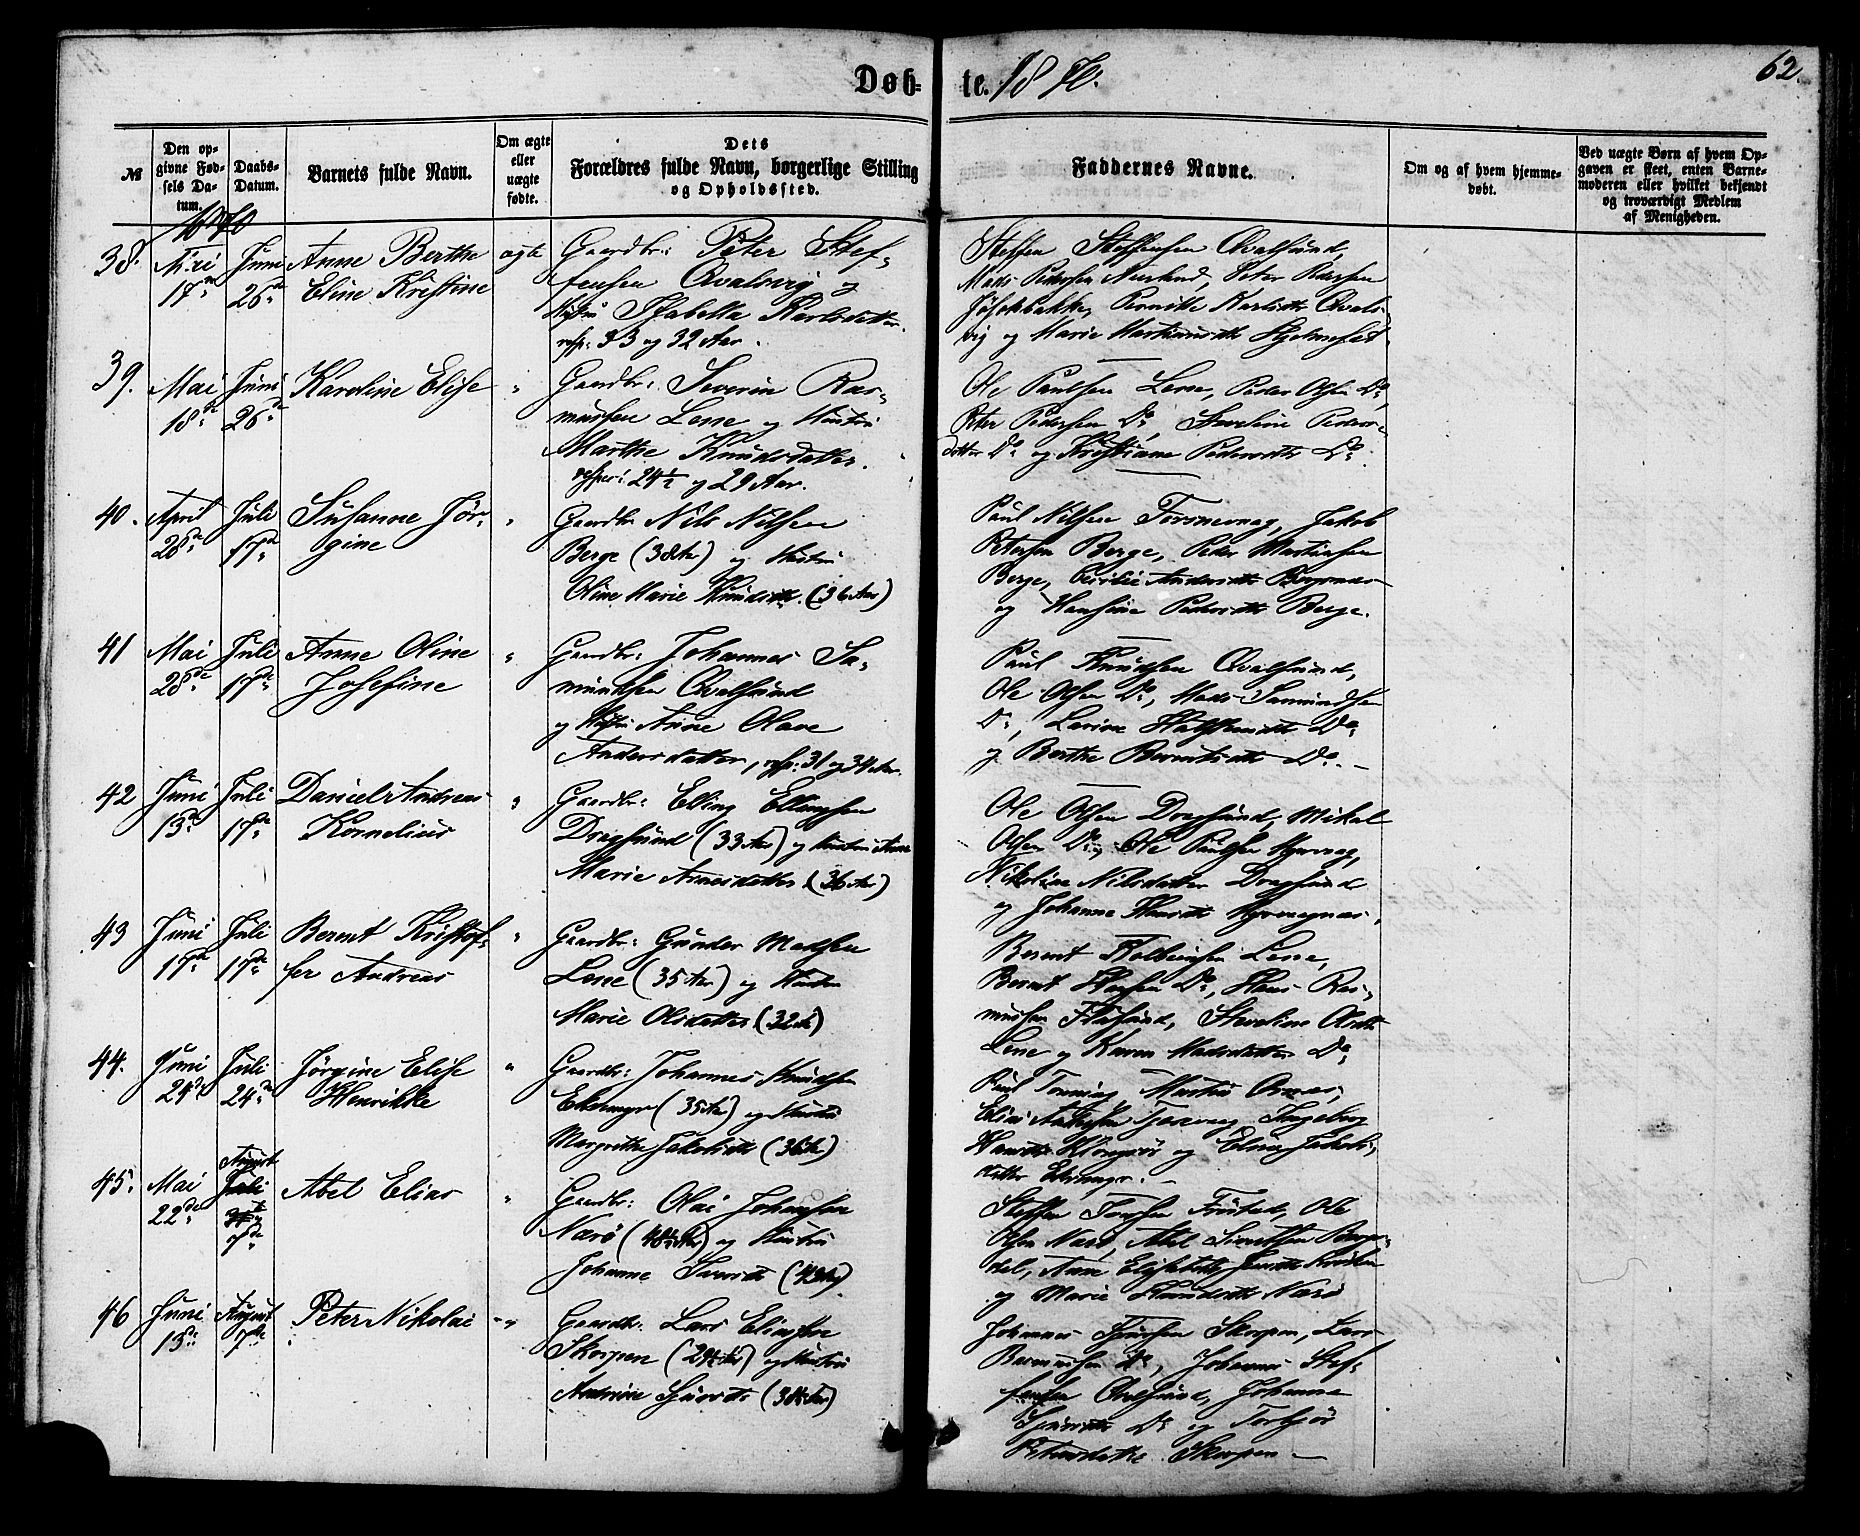 Døb-te. 1870.
62.
№
Den op-
givne Fød-
sels Da-
tum.
Daabs-
Datum.
Barnets fulde Navn.
Om ægte
eller
uægte
fødte.
Dets
Forældres fulde Navn, borgerlige Stilling
og Opholdssted.
Faddernes Navne.
Om og af hvem hjemme-
døbt.
Ved uægte Børn af hvem Op-
gaven er skeet, enten Barne-
moderen eller hvilket bekjendt
og troværdigt Medlem
af Menigheden.
1870
38. Mai 17de Juni 26de
Anne Berthe
Eline Kristine
ægte
Gaardbr: Peter Stef-
fensen Qvalsvig og
Hustru Isabella Karlsdatter.
resp: 33 og 32 Aar.
Steffen Steffensen Qvalsund,
Mads Pedersen Nærland, Peter Larsen
Jøsokbakke, Pernille Karlsdtr Qvals-
vig og Marie Martinusdtr Hjelmeset.
39. Mai 18de Juni 26de
Karoline Elise
"
Gaardbr: Severin Ras-
mussen Lene og Hustru
Marthe Knudsdatter.
resper: 24½ og 29 Aar.
Ole Paulsen Lene, Peder Olsen Do,
Peter Pedersen Do, Severine Peders-
datter Do og Kristiane Pedersdtr Do.
40. April 28de Juli 17de
Susanne Jør-
gine
"
Gaardbr: Nils Nilsen
Berge (38 Ar) og Hustru
Oline Marie Knudsdtr. (36 Aar)
Paul Nilsen Torsnesvag, Jakob
Petersen Berge, Peder Martinsen
Berge, Cecilie Andersdtr
og Hansine Pedersdtr Berge.
41 Mai 28de Juli 17de
Anne Oline
Josefine
"
Gaardbr: Johannes Sa-
mundsen Qvalsund
og Hustru Anne Olave
Andersdatter, resp: 31 og 34 Aar.
Paul Knudsen Qvalsund,
Ole Olsen Do, Mads Samundsen
Do, Larine Do
og Berthe Berntsdtr Do. -
42 Juni 13de Juli 17de
Daniel Andreas
Kornelius
"
Gaardbr: Elling Ellingsen
Dragsund (33 Aar) og Hustru Anne
Marie Arnesdatter (36 Aar)
Ole Olsen Dragsund, Mikal
Olsen Do, Ole Paulsen Myrvag,
Nikoline Nilsdatter Dragsund
og Johanne Hansdtr Myrvagnæs.
43 Juni 17de Juli 17de
Berent Kristof-
fer Andreas
"
Gaardbr: Gunder Madsen
Lene (35 Aar) og Hustru
Marie Olsdatter (32 Ar)
Berent Kolbeinsen Lene,
Bernt Hansen Do, Hans Ras-
mussen Flusund, Steveline Olsdtr
Lene og Karen Madsdatter Do,
44. Juni 24de Juli 24de
Jørgine Elise
Henrikke
"
Gaardbr: Johannes Knudsen
Eksmyr (35 Ar) og Hustru
Margrethe Jakobsdtr (36 Ar)
Paul
Elias Ingeborg
Hansdtr og Eline Jakobs-
datter Eksmyr. -
45. Mai 22de August
Juli
7de
Abel Elias
"
Gaardbr: Olai Johansen
Nærø (48½ Ar) og Hustru
Johanne Sivertsdtr (43 Ar)
Steffen Ole
Olsen Nærø, Abel Sivertsen Berge-
dal, Anne Elisabeth
og Marie Nærø
46 Juni 13de August 7de
Peter Nikolai
- "
Gaardbr: Lars Eliassen
Skorpen (29½ Ar) og Hustru
Andrine Sjursdtr (30½ Ar)
Johannes Sjursen Skorpen, Lars
Rasmussen Do, Johannes Stef-
fensen Qvalsund, Johanne
Sjursdtr Do og Torbjør
Petersdatter Skorpen -